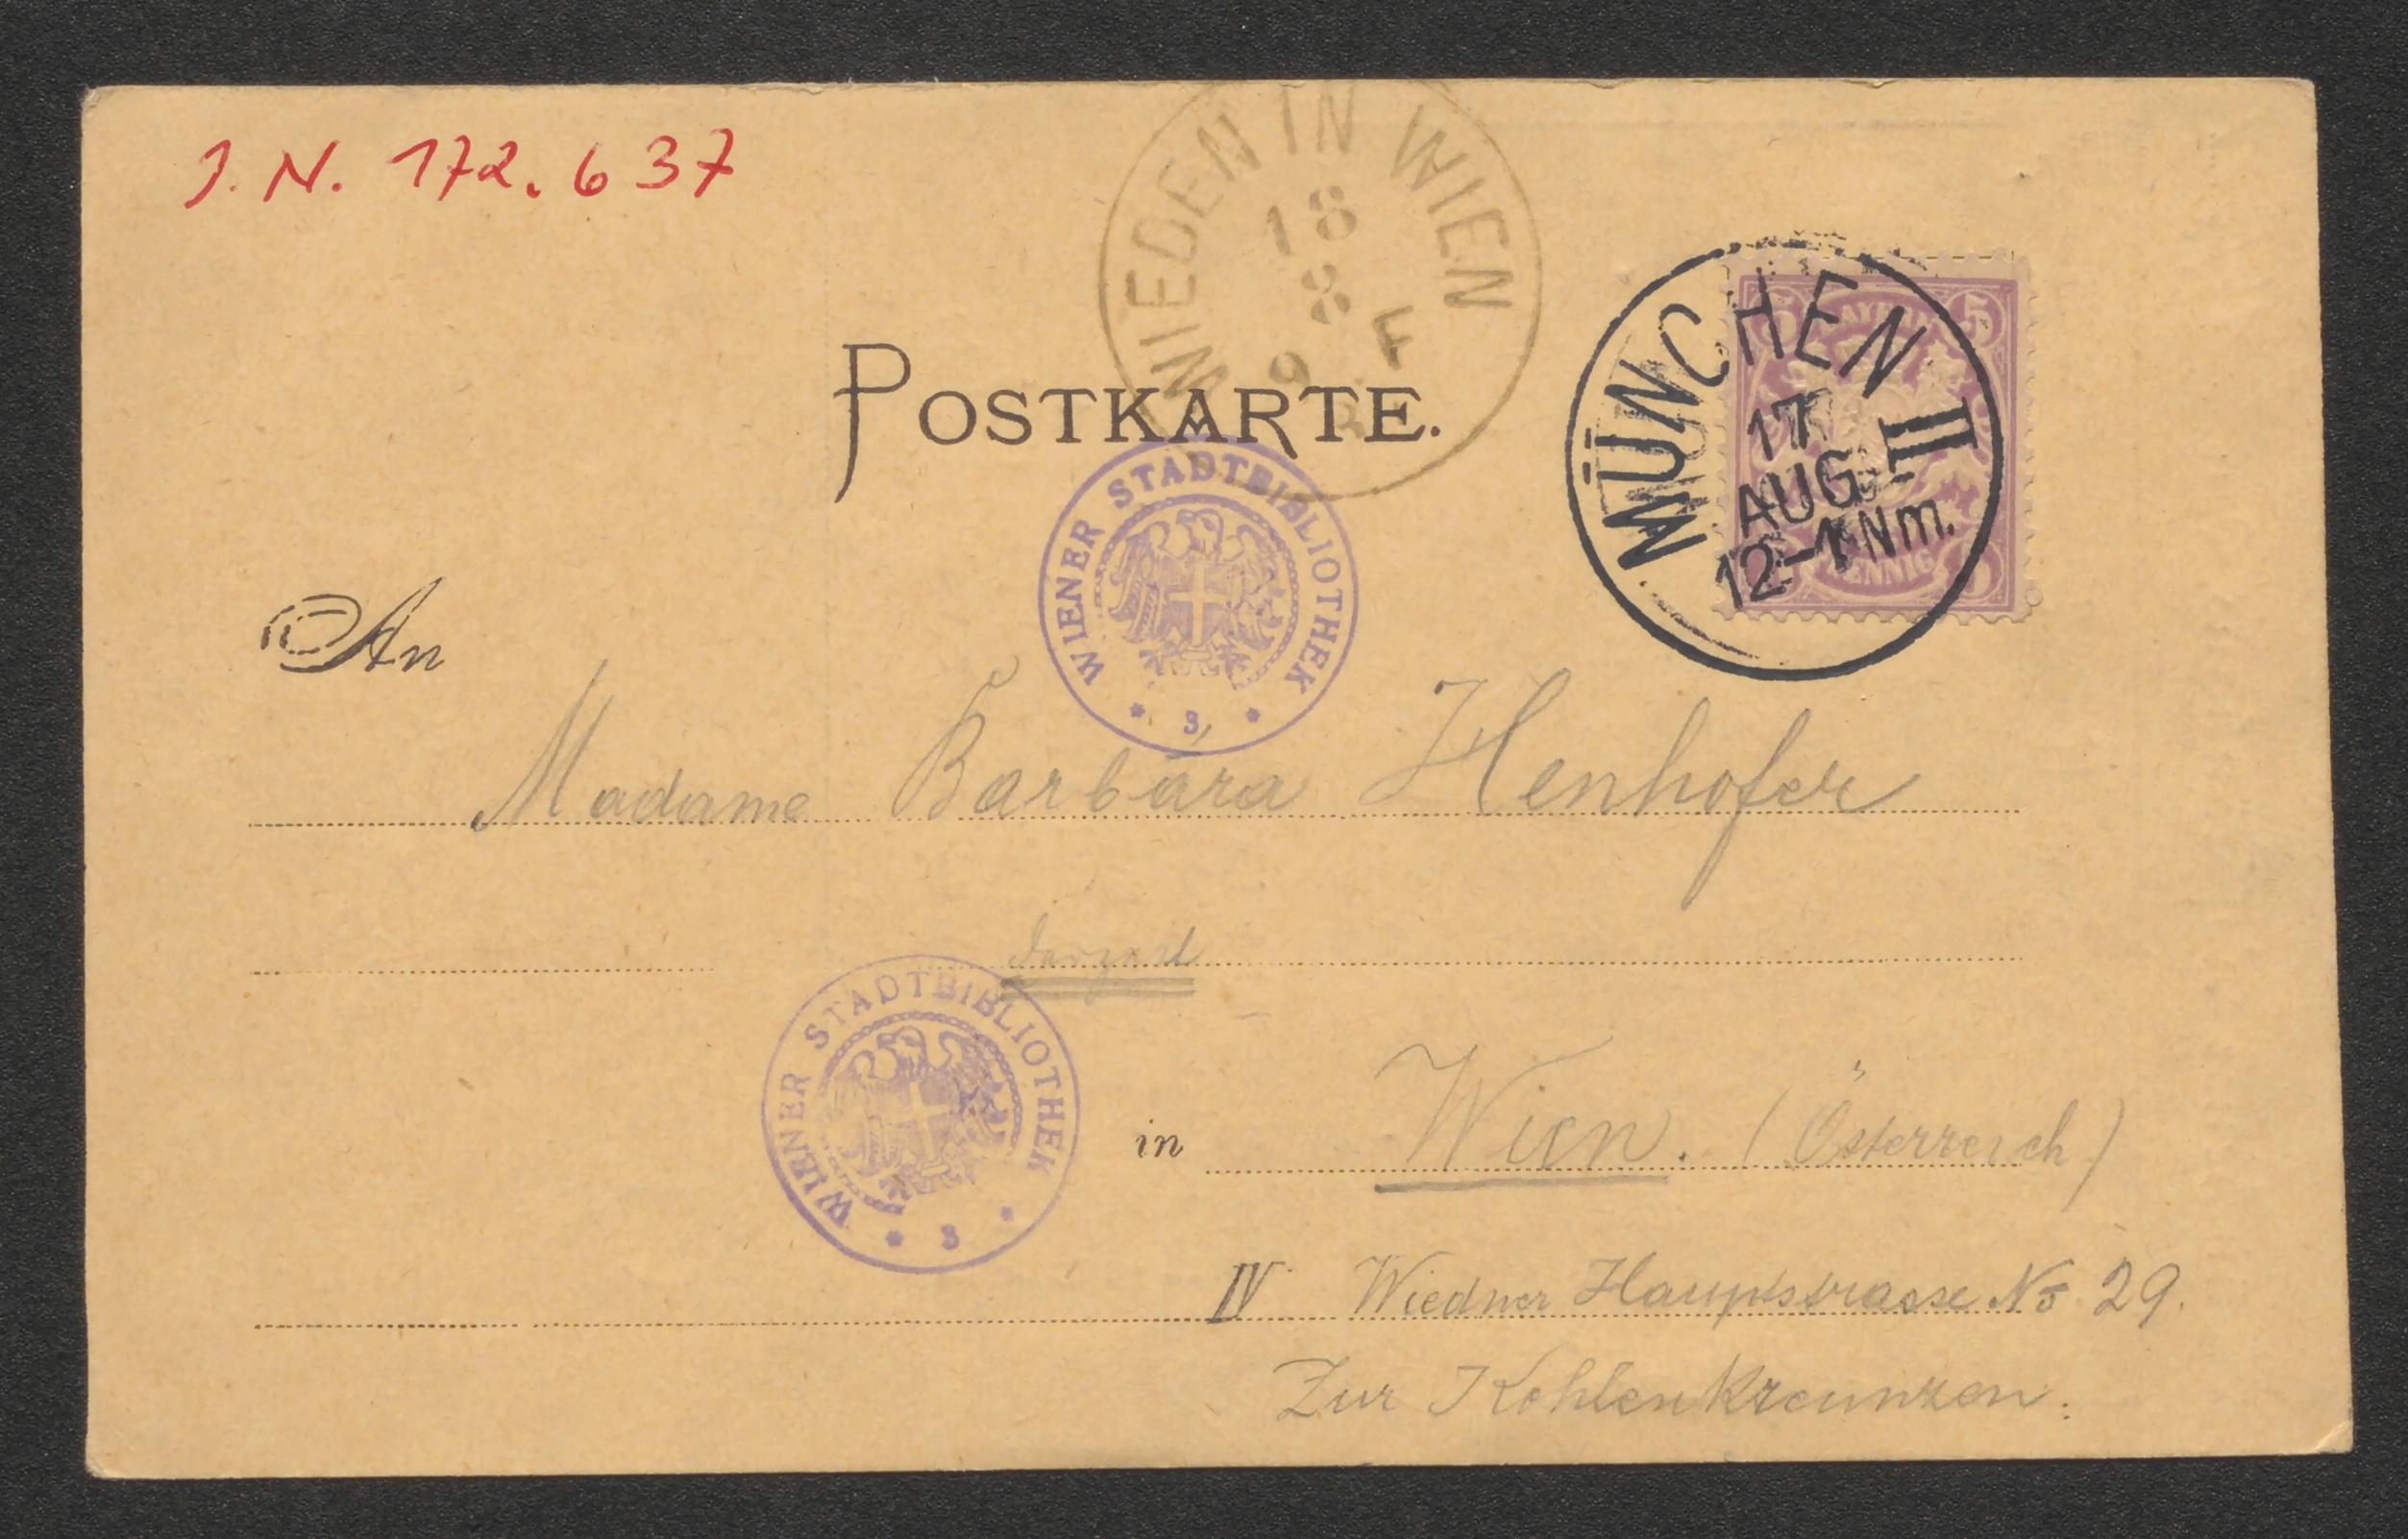 J. N. 172.637
WIEDEN IN WIEN
18
8
9
F
MÜNCHEN II
17
AUG
12-1 Nm.
BAYERN
5
PFENNIG
POSTKARTE.
WIENER STADTBIBLIOTHEK
* 3 *
An
Madame Barbara Henhofer
WIENER STADTBIBLIOTHEK
* 3 *
in Wien. (Österreich)
IV Wiedner Hauptstrasse No 29.
Zur